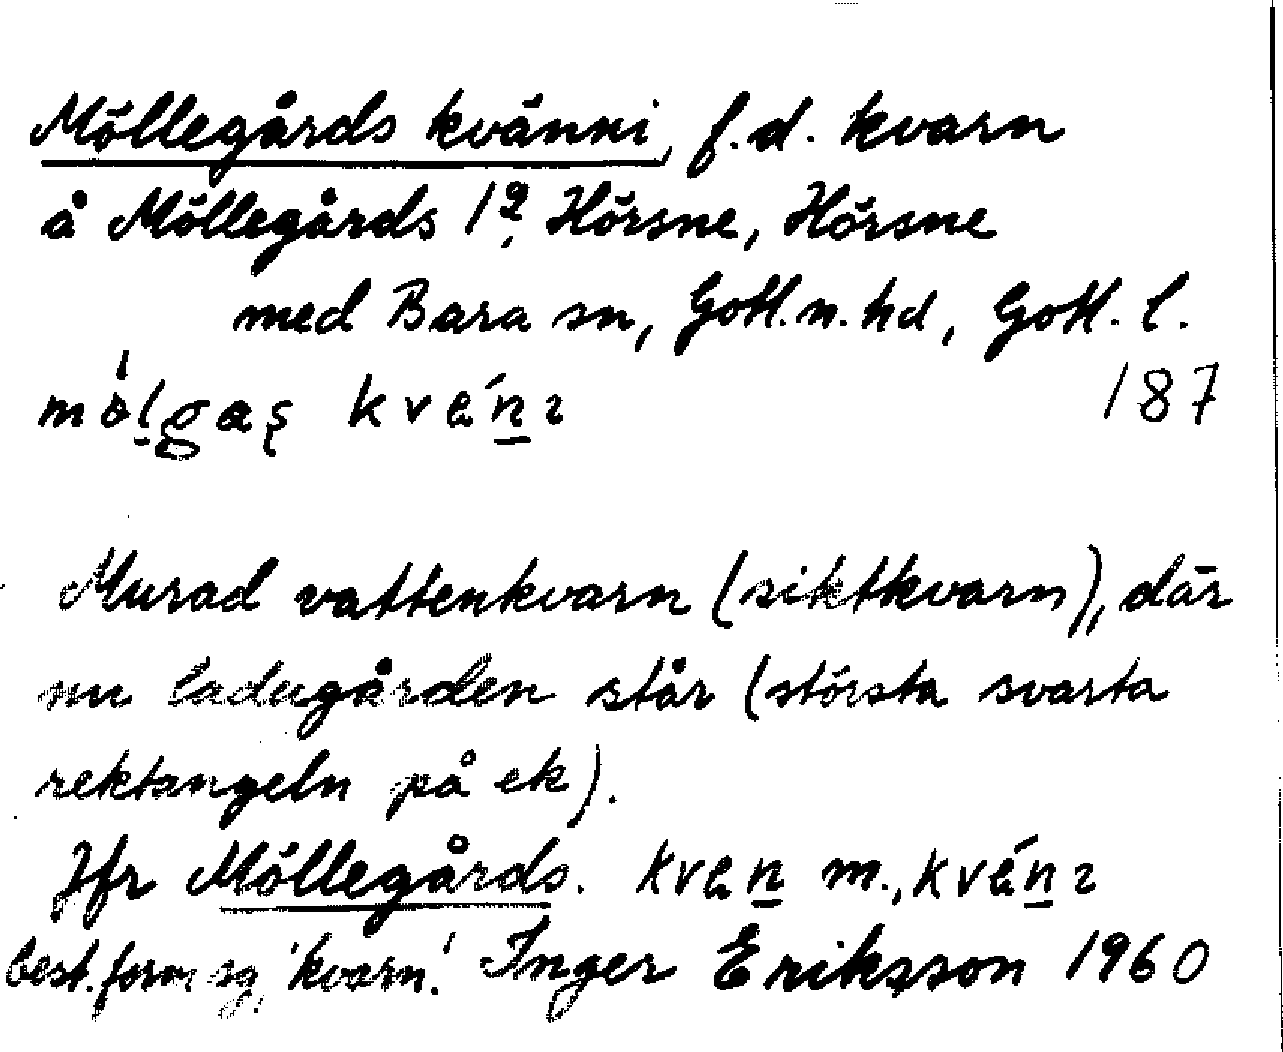 Möllegårds kvänni, f.d. kvarn
å Möllegårds 1², Hörsne, Hörsne
med Bara sn, Gotl. n. hd, Gotl. l.
kvén̲ı 187
Murad vattenkvarn (siktkvarn), där
nu ladugården står (största svarta
rektangeln på ek).
Jfr Möllegårds. kven̲ m., kvén̲ı
best. form sg, 'kvarn'. Inger Eriksson 1960